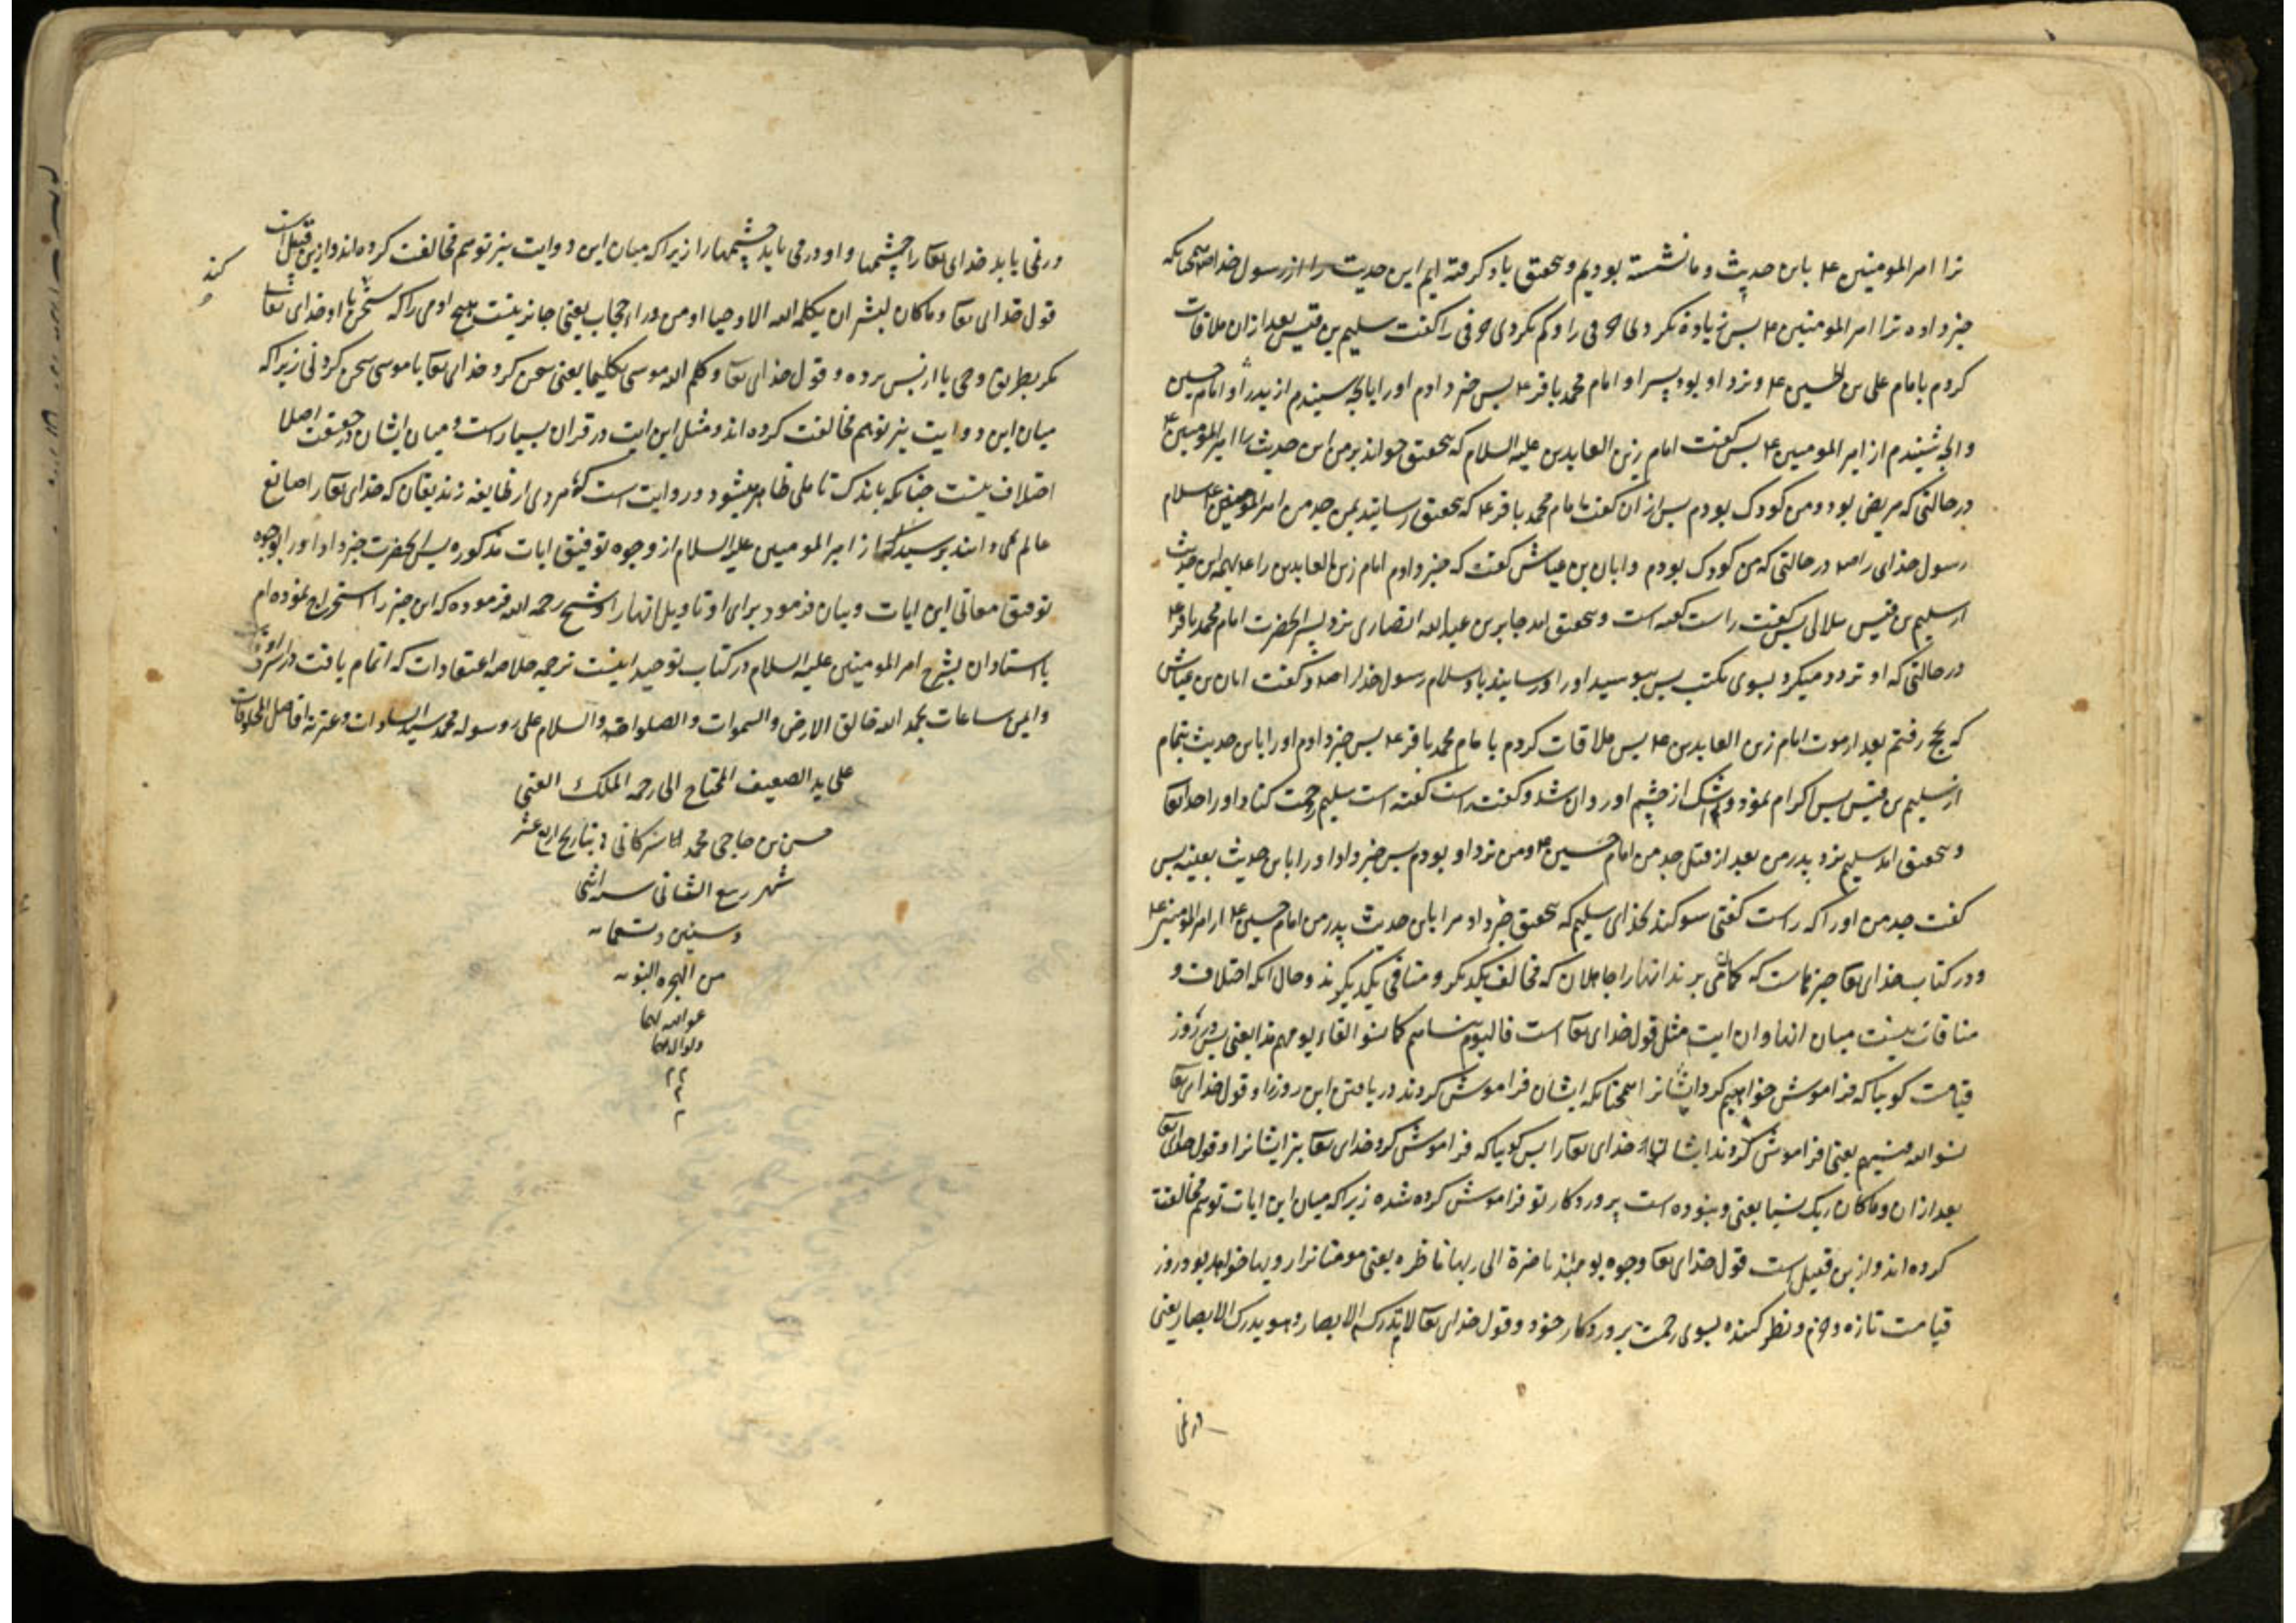 ترا امیرالمومنین ع باین حدیث و ما نشسته بودیم و بتحقیق یاد گرفته ایم این حدیث را از رسول خدا صع چنانکه
خبر داده ترا امیرالمومنین ع پس زیاده نکردی حرفی را و کم نکردی حرفی را گفت سلیم بن قیس بعد از ان ملاقات
کردم با امام علی بن الحسین ع و نزد او بود پسر او امام محمد باقر ع پس خبر دادم او را بانچه شنیدم از پدر او امام حسین
و انچه شنیدم از امیرالمومنین ع پس گفت امام زین العابدین علیه السلام که بتحقیق خواند بر من این حدیث را امیرالمومنین ع
در حالتی که مریض بود و من کودک بودم پس از ان گفت امام محمد باقر ع که بتحقیق رسانید بمن جد من امیرالمومنین ع سلام
رسول خدای را صع در حالتی که من کودک بودم و ابان بن عیاش گفت که خبر دادم امام زین العابدین را ع بهمه این حدیث
از سلیم بن قیس هلالی پس گفت راست گفته است و بتحقیق امد جابر بن عبدالله انصاری نزد پسر انحضرت امام محمد باقر ع
در حالتی که او تردد میکرد بسوی مکتب پس ببوسید او را و رسانید باو سلام رسول خدا را صع و گفت ابان بن عیاش
که بحج رفتم بعد از موت امام زین العابدین ع پس ملاقات کردم با امام محمد باقر ع پس خبر دادم او را باین حدیث بتمام
از سلیم بن قیس پس اکرام نمود و اشک از چشم او روان شد و گفت راست گفته است سلیم رحمت کناد او را خدای تعا
و بتحقیق امد سلیم نزد پدر من بعد از قتل جد من امام حسین ع و من نزد او بودم پس خبر داد او را باین حدیث بعینه پس
گفت جد من او را که راست گفتی سوکند بخدای سلیم که بتحقیق خبر داد مرا باین حدیث پدر من امام حسین ع از امیرالمومنین ع
و در کتاب خدای تعا چیزهاست که گمان می برند انها را جاهلان که مخالف یکدیگر و منافی یکدیگرند و حال انکه اختلاف و
منافات نیست میان انها و ان ایت مثل قول خدای تعا است فالیوم ننساهم کما نسوا لقاء یومهم هذا یعنی پس در روز
قیامت کویا که فراموش خواهیم کرد ایشانرا همچنانکه ایشان فراموش کردند دریافتن این روز را و قول خدای تعا
نسوا الله فنسیهم یعنی فراموش کردند ایشان خدای تعا را پس کویا که فراموش کرد خدای تعا نیز ایشانرا و قول خدای تعا
بعد از ان و ماکان ربک نسیا یعنی و نبوده است پروردکار تو فراموش کرده شده زیرا که میان این ایات توهم مخالفت
کرده اند و ازین قبیل است قول خدای تعا وجوه یومئذ ناضرة الی ربها ناظره یعنی مومنانرا رویها خواهد بود روز
قیامت تازه و خرم و نظر کننده بسوی رحمت پروردکار خود و قول خدای تعا لا تدرکه الابصار و هو یدرک الابصار یعنی
در نمی
در نمی یابد خدای تعا را چشمها و او در می یابد چشمها را زیرا که میان این دو ایت نیز توهم مخالفت کرده اند و ازین قبیل است
قول خدای تعا و ماکان لبشر ان یکلمه الله الا وحیا او من وراء حجاب یعنی جایز نیست هیچ ادمی را که سخن با او خدای تعا
کند
مکر بطریق وحی یا از پس پرده و قول خدای تعا و کلم الله موسی تکلیما یعنی سخن کرد خدای تعا با موسی سخن کردنی زیرا که
میان این دو ایت نیز توهم مخالفت کرده اند و مثل این ایت در قران بسیار است و میان ایشان در حقیقت اصلا
اختلاف نیست چنانکه باندک تاملی ظاهر میشود و روایت است که مردی از طایفه زندیقان که خدای تعا را صانع
عالم نمی دانند پرسید از امیرالمومنین علیه السلام از وجوه توفیق ایات مذکوره پس انحضرت خبر داد او را بوجوه
توفیق معانی این ایات و بیان فرمود برای او تاویل انها را و شیخ رحمه الله فرموده که این خبر را استخراج نموده ام
باستادان بشرح امیرالمومنین علیه السلام در کتاب توحید اینست ترجمه خلاصه اعتقادات که اتمام یافت در اشرف اوقات
و ایمن ساعات بحمد الله خالق الارض والسموات والصلوات والسلام علی رسوله محمد سید السادات وعترته افاضل المخلوقات
علی ید الضعیف المحتاج الی رحمه الملک الغنی
حسن بن حاجی محمد بتاریخ اربع عشر
شهر ربیع الثانی سنه اثنی
وستین وتسعمائه
من الهجره النبویه
غفرالله لهما
ولوالدیهما